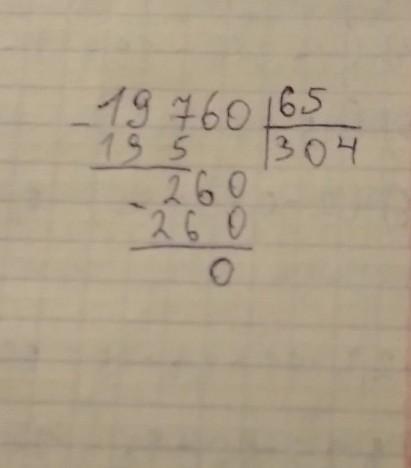 - 19 760 | 65
19 5 | 304
- 260
260
0